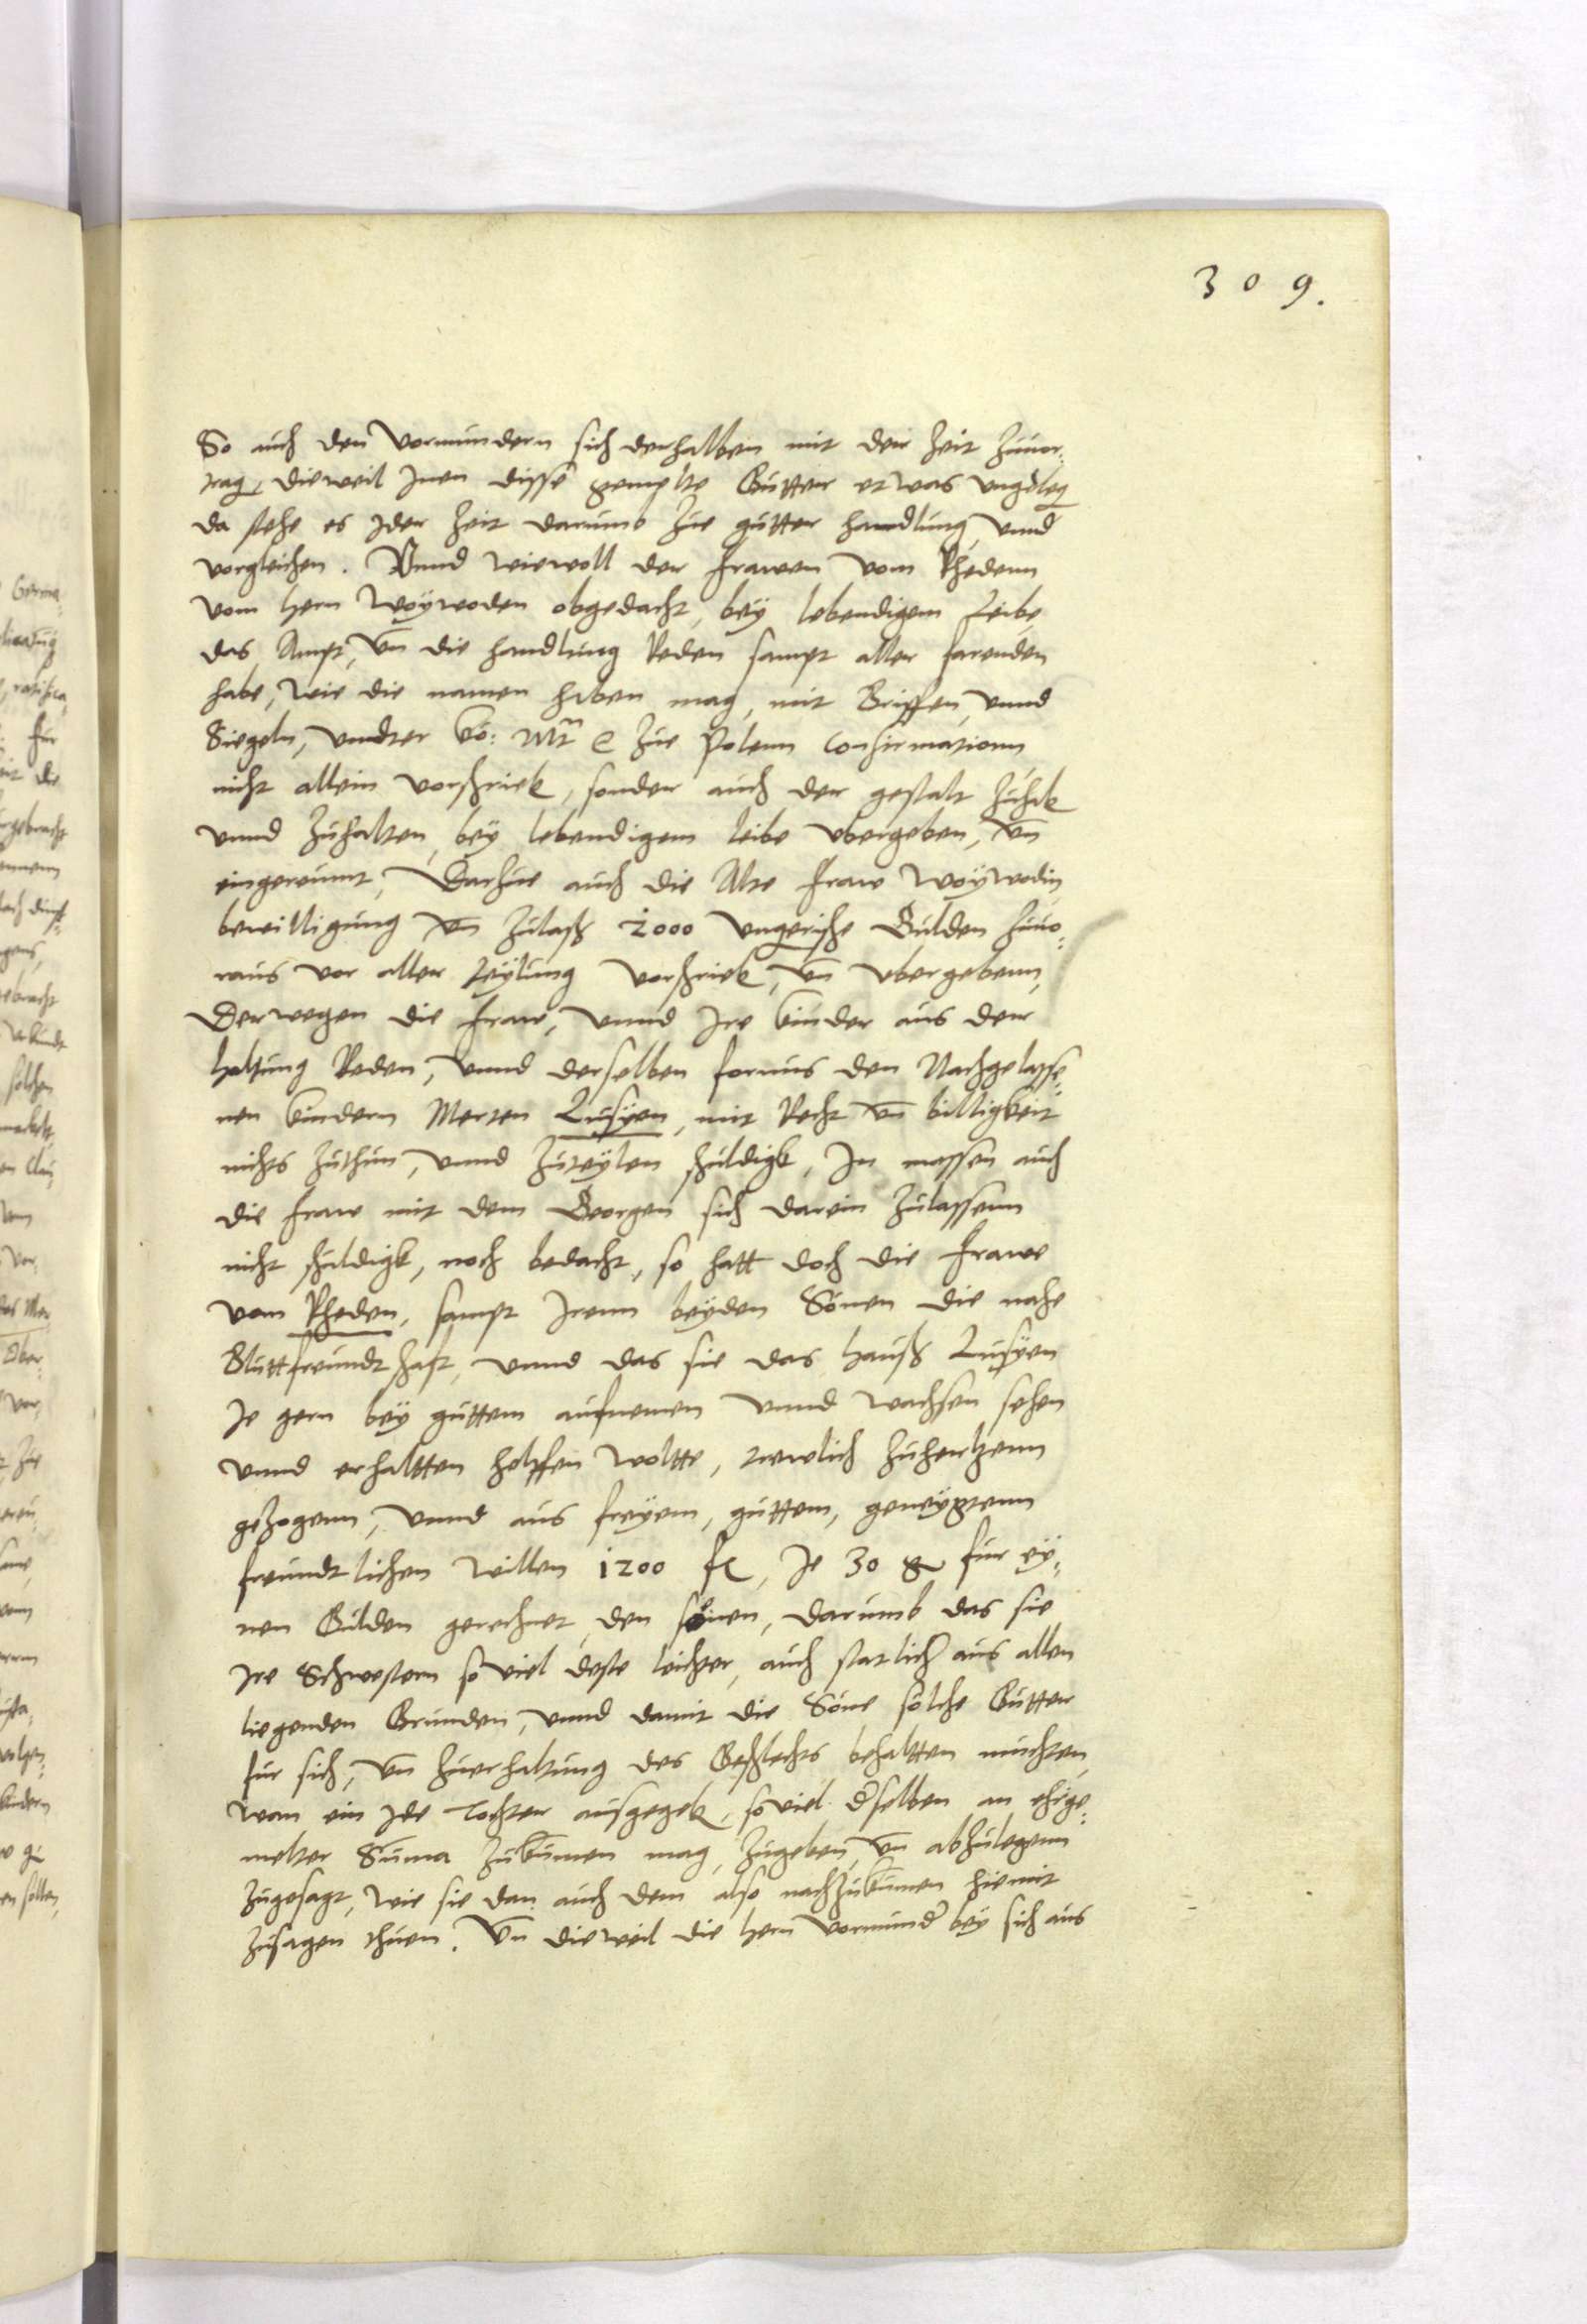 309.
So auch den Vormundern sich derhalben mit der Zeit zuuor:
trag, dieweil Inen disse gemelte Gutter etwas ungeleg
da stehe es Ider Zeit darumb zue gutter handlung vnnd
vorgleichen. Vnnd wiewoll der frawen vom Rhedenn
vom Hern Woywoden obgedacht, bey lebendigem Leibe
das Ampt, vn die handlung Reden sampt aller farenden
habe, wie die namen haben mag, mit Briffen, vnnd
Siegeln, vndter Ko: Mt zue Polenn Confirmationn
nicht allein vorschrieb, sonder auch der gestalt zuhab
vnnd zuhalten, bey lebendigem leibe vbergeben, vn
eingereumt, Darzue auch die Alte fraw Woywodin
bewilligung vn zulass 2000 vngerische Gulden zuuo:
raus vor aller teylung vorschrieb, vn vbergebenn,
Derwegen die fraw, vnnd Ire kinder aus der
haltung Reden, vnnd derselben fornus den Nachgelasse:
nen kindern Merten Zusyen, mit Recht vn billigkeit
nichts zuthun, vnnd zuteylen schuldigk, In massen auch
die fraw mit dem Georgen sich darein zulassenn
nicht schuldigk, noch bedacht, so hatt doch die frawe
vom Rheden, sampt Irenn beyden Sönen die nahe
Bluttfreundtschaft, vnnd das sie das Hauss Zusyen
Je gern bey guttem aufnemen vnnd wachsen sehen
vnnd erhaltten helffen woltte, trewlich zuhertzenn
gezogenn, vnnd aus freyem, guttem, geneygtenn
freundtlichen willen 1200 fl, Je 30 g fur ey:
nen Gulden gerechnet, den sönen, darumb das sie
Ire Schwestern so viel deste leichter, auch statlich aus allen
liegenden Grunden, vnnd damit die Söne solche Gutter
fur sich, vn zuerhaltung des Geschlechts behaltten muchten,
wan ein Ide Tochter ausgegeb, soviel dselben an ehege:
melter Suma zukumen mag, zugeben, vn abzulegenn
zugesagt, wie sie dan auch dem also nachzukumen hiemit
zusagen thuen. Vn dieweil die Hern Vormund bey sich aus